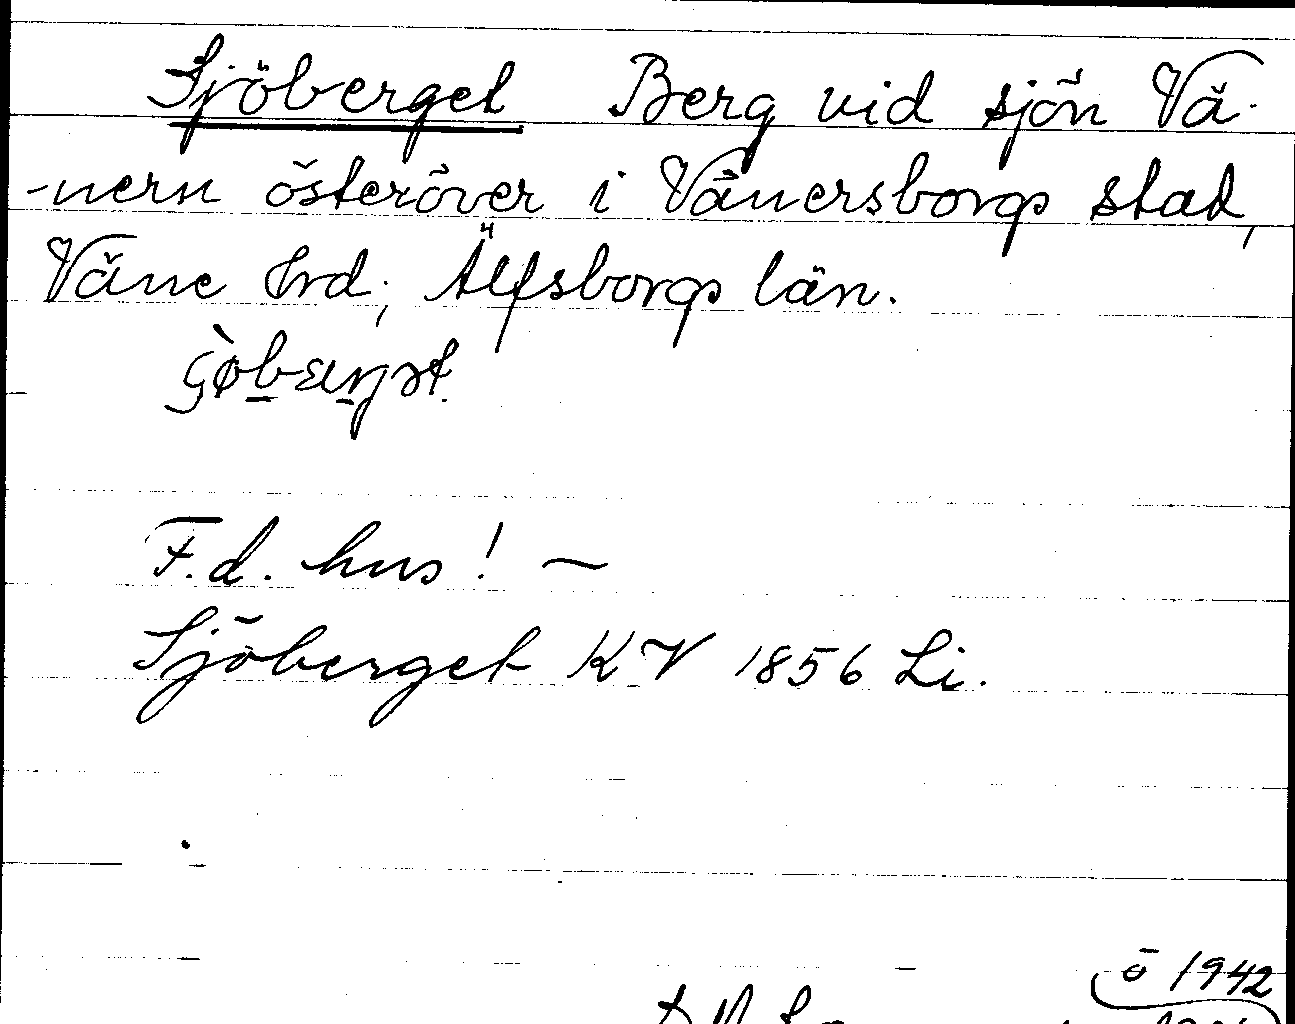 Sjöberget Berg vid sjön Vä-
-nern österöver i Vänersborgs stad,
Väne hrd, Älfsborgs län.
F.d. hus! —
Sjöberget KV 1856 Li.
ö 1942